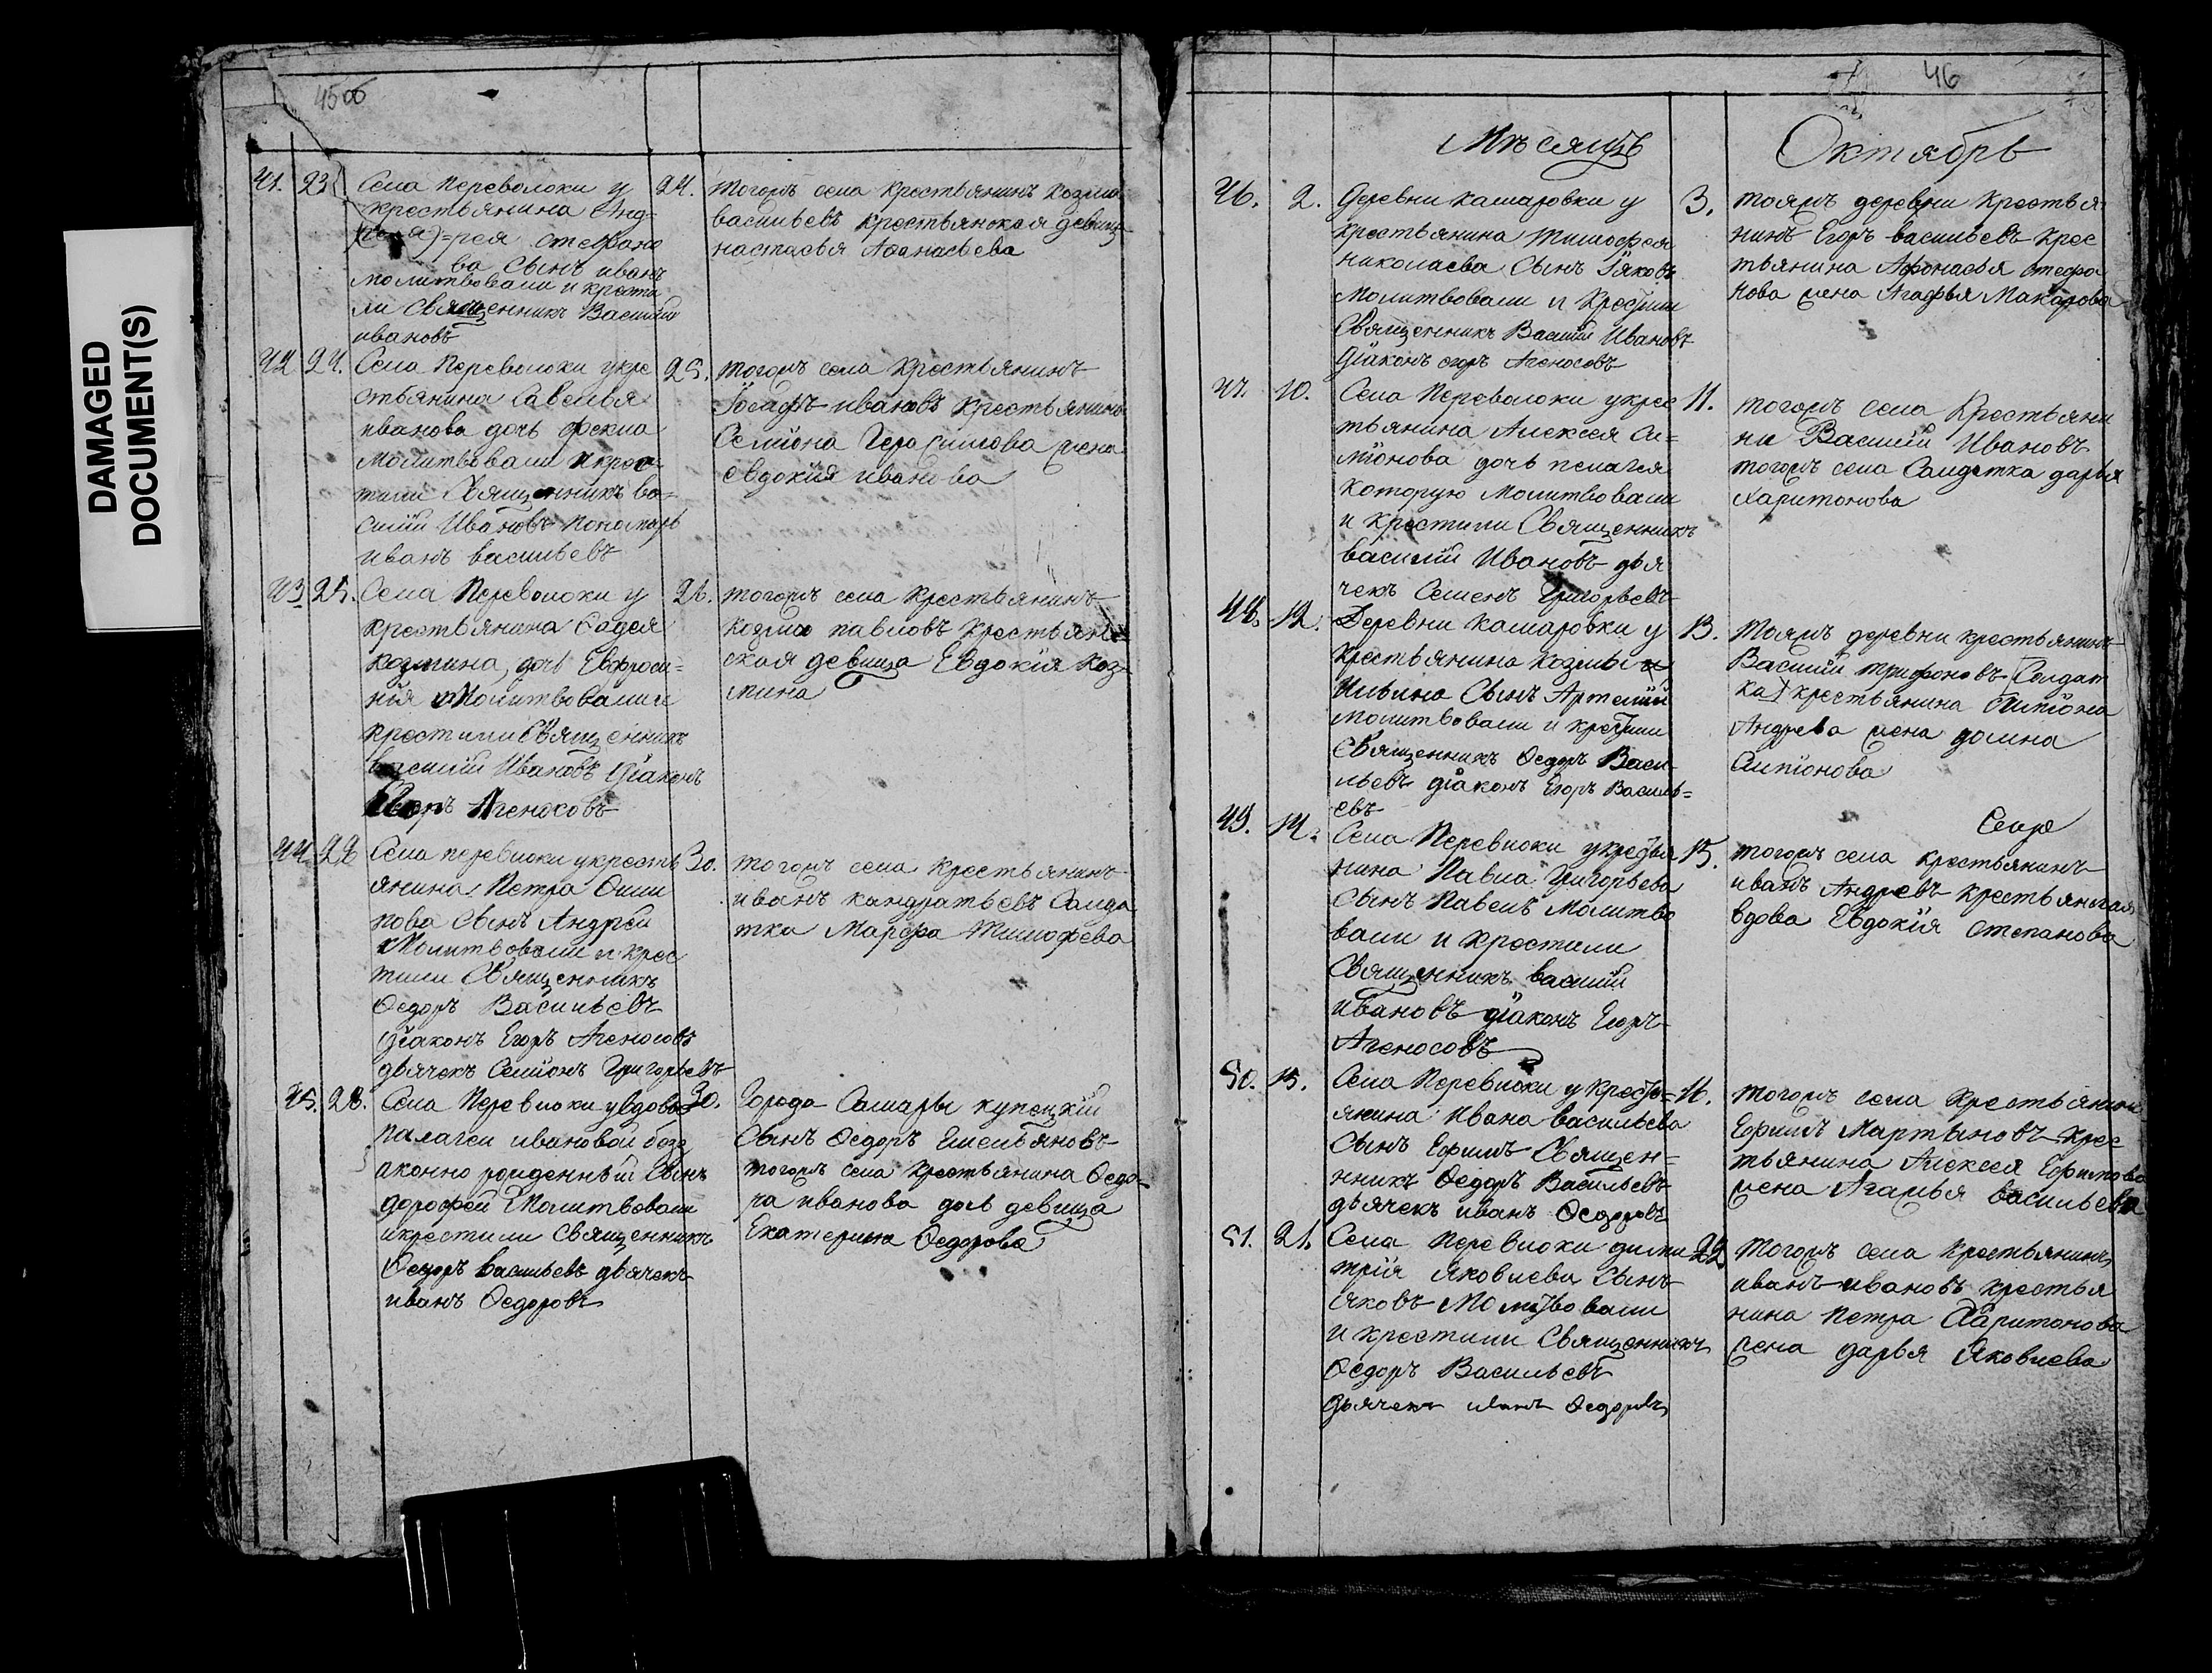 DAMAGED
DOCUMENT(S)
45об
41. 23
Села переволоки у
крестьянина Анд=
рея стефано
ва Сынъ иванъ
молитвовали и крести
ли Священникъ Василий
ивановъ
24.
тогожъ села крестьянинъ козма
васильевъ крестьянская девица
настасья Афанасьева
42 24.
Села Переволоки укре
стьянина Савелья
иванова дочь фекла
молитвовали и крес=
тили Священникъ ва=
силий Ивановъ пономарь
иванъ васильевъ
25.
тогожъ села крестьянинъ
Іосафъ ивановъ крестьянина
Семиона Герасимова жена
евдокия иванова
43 25.
Села Переволоки у
крестьянина Фадея
козмина, дочь Евфроси=
нія Молитвовали и
крестили Священникъ
василий Ивановъ діаконъ
Егоръ Агеносовъ
26.
тогожъ села крестьянинъ
козма павловъ крестьян
ская девица Евдокія Коз
мина
44. 28
Села переволоки укресть
янина Петра Оши
пова сынъ Андрей
Молитвовали и крес
тили Священникъ
Ѳедоръ Васильевъ
діаконъ Егоръ Агеносовъ
дьячекъ Семионъ Григорьевъ
30.
тогожъ села крестьянинъ
иванъ кандратьевъ Салда
тка Марфа Тимофева
45. 28.
Села Переволоки увдовы
палагеи ивановой безз
аконно рожденный Сынъ
дорофей Молитвовали
икрестили Священникъ
Ѳедоръ васильевъ дьячекъ
иванъ Ѳедоровъ
30.
Города Самары купецкий
Сынъ Ѳедоръ Емельяновъ
тогожъ села крестьянина Ѳедо=
ра иванова дочь девица
Екатерина Ѳедорова
46
Месяцъ Октябрь
46. 2.
Деревни кашаровки у
крестьянина тимофея
николаева Сынъ Іяковъ
Молитвовали и Крестили
Священникъ Василий Ивановъ
Діаконъ егоръ Агеносовъ
3.
тояжъ деревни крестья
нинъ Егоръ васильевъ крес
тьянина Афонасья стефа
нова жена Агафья Макарова
47. 10.
Села Переволоки укрес
тьянина Алексея Си=
міонова дочь пелагея
которую Молитвовали
и крестили Священникъ
василий Ивановъ дья
чекъ Семенъ Григорьевъ
11.
тогожъ села Крестьяни
нъ Василий Ивановъ
тогожъ села Салдатка дарья
Харитонова
48. 12.
Деревни Кашаровки у
крестьянина козмы
Ильина Сынъ Артемий
молитвовали и крестили
Священникъ Ѳедоръ Васи
льевъ діаконъ Егоръ Василь=
евъ
13.
Тояжъ деревни крестьянинъ
Василий трифоновъ (Солдат
ка) крестьянина Антіона
Андрева жена домна
Антіонова
49. 14.
Села Переволоки укрестья
нина Павла Григорьева
Сынъ Павелъ Молитво
вали и крестили
Священникъ василий
ивановъ діаконъ Егоръ
Агеносовъ
15.
тогожъ села крестьянинъ
иванъ Андревъ крестьянская
вдова Евдокія степанова
50. 15.
Села Переволоки у кресть=
янина Ивана васильева
Сынъ Ефимъ Священ=
нникъ Ѳедоръ Васильевъ
дьячекъ иванъ Ѳедоровъ
16.
тогожъ села крестьянинъ
Ефимъ Мартыновъ крес
тьянина Алексея Ефимова
жена Агафья васильева
51. 21.
Села Переволоки дими
трія яковлева Сынъ
Яковъ Молитвовали
и крестили Священникъ
Ѳедоръ Васильевъ
дьячекъ иванъ Ѳедоровъ
22
тогожъ села крестьянинъ
иванъ ивановъ крестья
нина петра Харитонова
жена дарья Яковлева